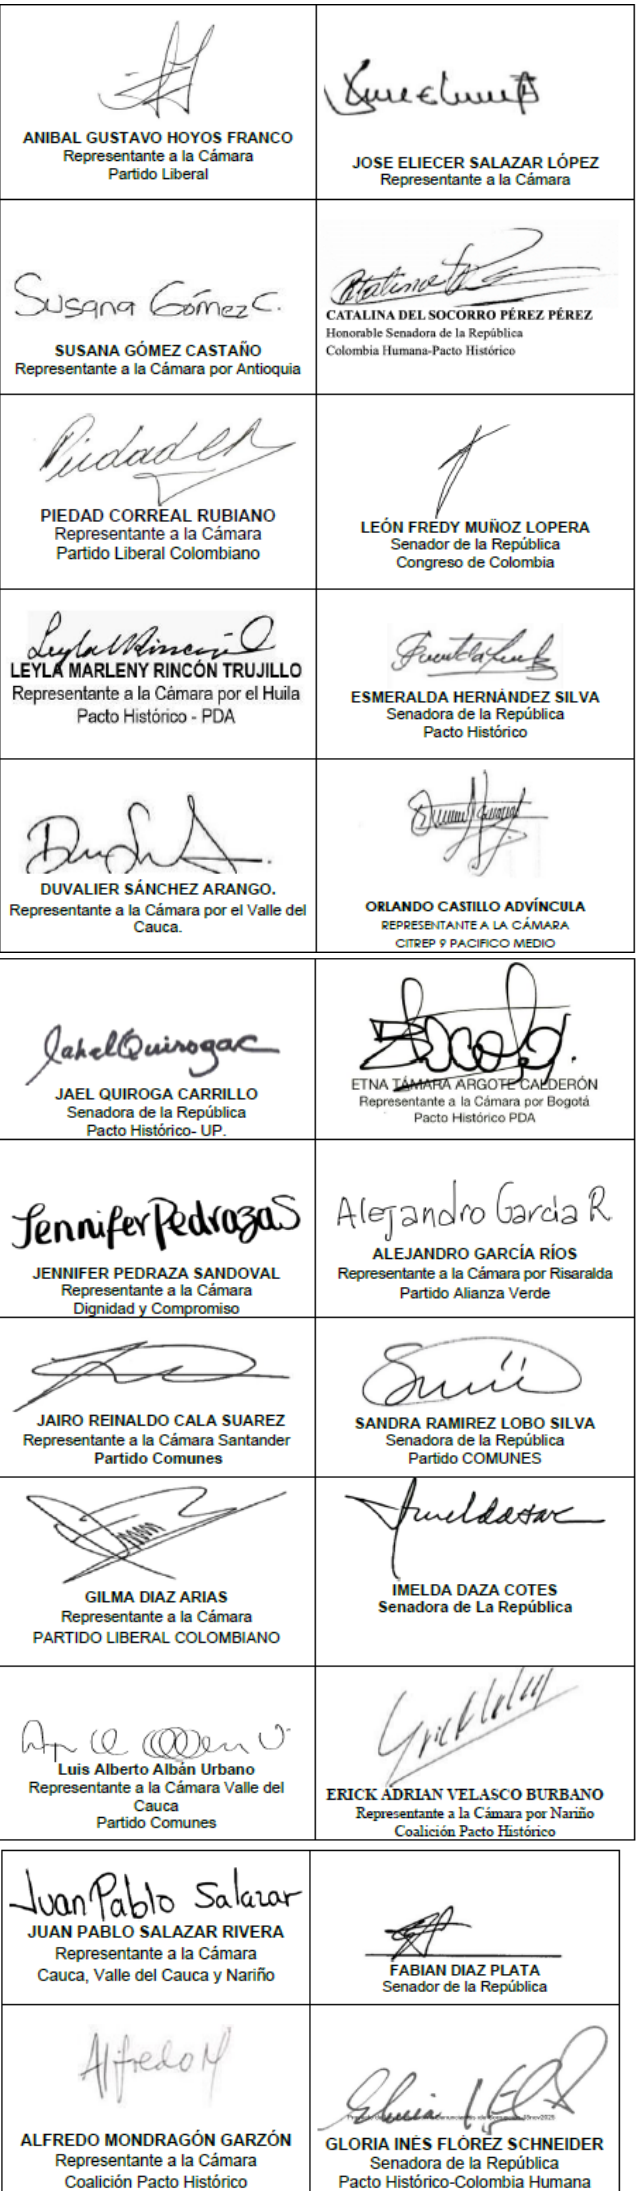 ANIBAL GUSTAVO HOYOS FRANCO
Representante a la Cámara
Partido Liberal
JOSE ELIECER SALAZAR LÓPEZ
Representante a la Cámara
Susana Gómez C.
SUSANA GÓMEZ CASTAÑO
Representante a la Cámara por Antioquia
CATALINA DEL SOCORRO PÉREZ PÉREZ
Honorable Senadora de la República
Colombia Humana-Pacto Histórico
PIEDAD CORREAL RUBIANO
Representante a la Cámara
Partido Liberal Colombiano
LEÓN FREDY MUÑOZ LOPERA
Senador de la República
Congreso de Colombia
LEYLA MARLENY RINCÓN TRUJILLO
Representante a la Cámara por el Huila
Pacto Histórico - PDA
ESMERALDA HERNÁNDEZ SILVA
Senadora de la República
Pacto Histórico
DUVALIER SÁNCHEZ ARANGO.
Representante a la Cámara por el Valle del
Cauca.
ORLANDO CASTILLO ADVÍNCULA
REPRESENTANTE A LA CÁMARA
CITREP 9 PACIFICO MEDIO
JAEL QUIROGA CARRILLO
Senadora de la República
Pacto Histórico- UP.
ETNA TÁMARA ARGOTE CALDERÓN
Representante a la Cámara por Bogotá
Pacto Histórico PDA
Jennifer Pedraza S
JENNIFER PEDRAZA SANDOVAL
Representante a la Cámara
Dignidad y Compromiso
Alejandro García R
ALEJANDRO GARCÍA RÍOS
Representante a la Cámara por Risaralda
Partido Alianza Verde
JAIRO REINALDO CALA SUAREZ
Representante a la Cámara Santander
Partido Comunes
SANDRA RAMIREZ LOBO SILVA
Senadora de la República
Partido COMUNES
GILMA DIAZ ARIAS
Representante a la Cámara
PARTIDO LIBERAL COLOMBIANO
IMELDA DAZA COTES
Senadora de La República
Luis Alberto Albán Urbano
Representante a la Cámara Valle del
Cauca
Partido Comunes
ERICK ADRIAN VELASCO BURBANO
Representante a la Cámara por Nariño
Coalición Pacto Histórico
Juan Pablo Salazar
JUAN PABLO SALAZAR RIVERA
Representante a la Cámara
Cauca, Valle del Cauca y Nariño
FABIAN DIAZ PLATA
Senador de la República
Alfredo M
ALFREDO MONDRAGÓN GARZÓN
Representante a la Cámara
Coalición Pacto Histórico
GLORIA INÉS FLÓREZ SCHNEIDER
Senadora de la República
Pacto Histórico-Colombia Humana